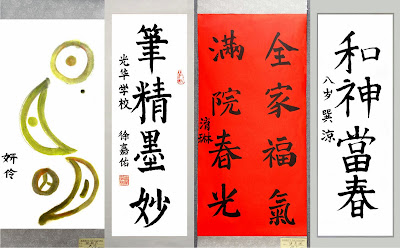 妍伶
筆精墨妙
光华学校 徐嘉佑
全家福氣
滿院春光
清琳
和神當春
八岁 巽凉